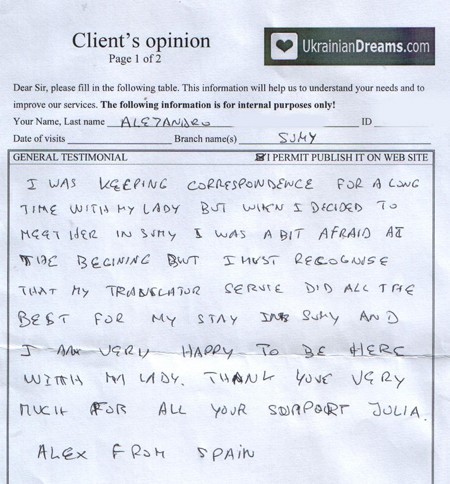 Client's opinion
Page 1 of 2
UkrainianDreams.com
Dear Sir, please fill in the following table. This information will help us to understand your needs and to
improve our services. The following information is for internal purposes only!
Your Name, Last name ALEJANDRO ID
Date of visits Branch name(s) SUMY
GENERAL TESTIMONIAL I PERMIT PUBLISH IT ON WEB SITE
I WAS KEEPING CORRESPONDENCE FOR A LONG
TIME WITH MY LADY BUT WHEN I DECIDED TO
MEET HER IN SUMY I WAS A BIT AFRAID AT
THE BEGINING BUT I MUST RECOGNISE
THAT MY TRANSLATOR SERVIE DID ALL THE
BEST FOR MY STAY IN SUMY AND
I AM VERY HAPPY TO BE HERE
WITH MY LADY. THANK YOUE VERY
MUCH FOR ALL YOUR SUPPORT JULIA.
ALEX FROM SPAIN